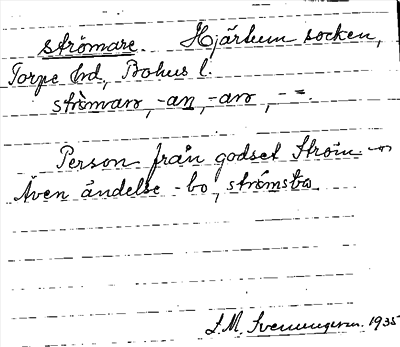 strömare. Hjärtum socken,
Torpe hrd, Bohus l.
strömarə, -an, -arə, - =.
Person från godset Ström
Även ändelse -bo, strömsbo
S.M. Svenungsson. 1935